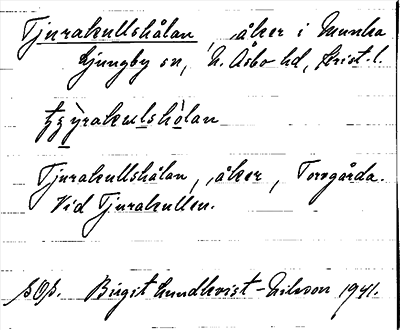 Tjurakullshålan, åker i Munka
Ljungby sn, N. Åsbo hd, Krist. l.
Tjurakullshålan, åker, Torsgårda.
Vid Tjurakullen.
Birgit Lundkvist-Nilsson 1941.